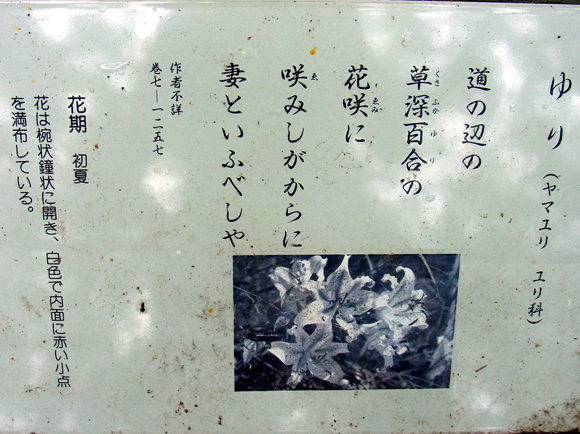 ゆり(ヤマユリ ユリ科)
道の辺の
草深百合の
くさ ふか ゆ り
花咲に
ゑみ
咲みしがからに
ゑ
妻といふべしや
作者不詳
巻七―一二五七
花期 初夏
花は椀状鐘状に開き、白色で内面に赤い小点
を満布している。